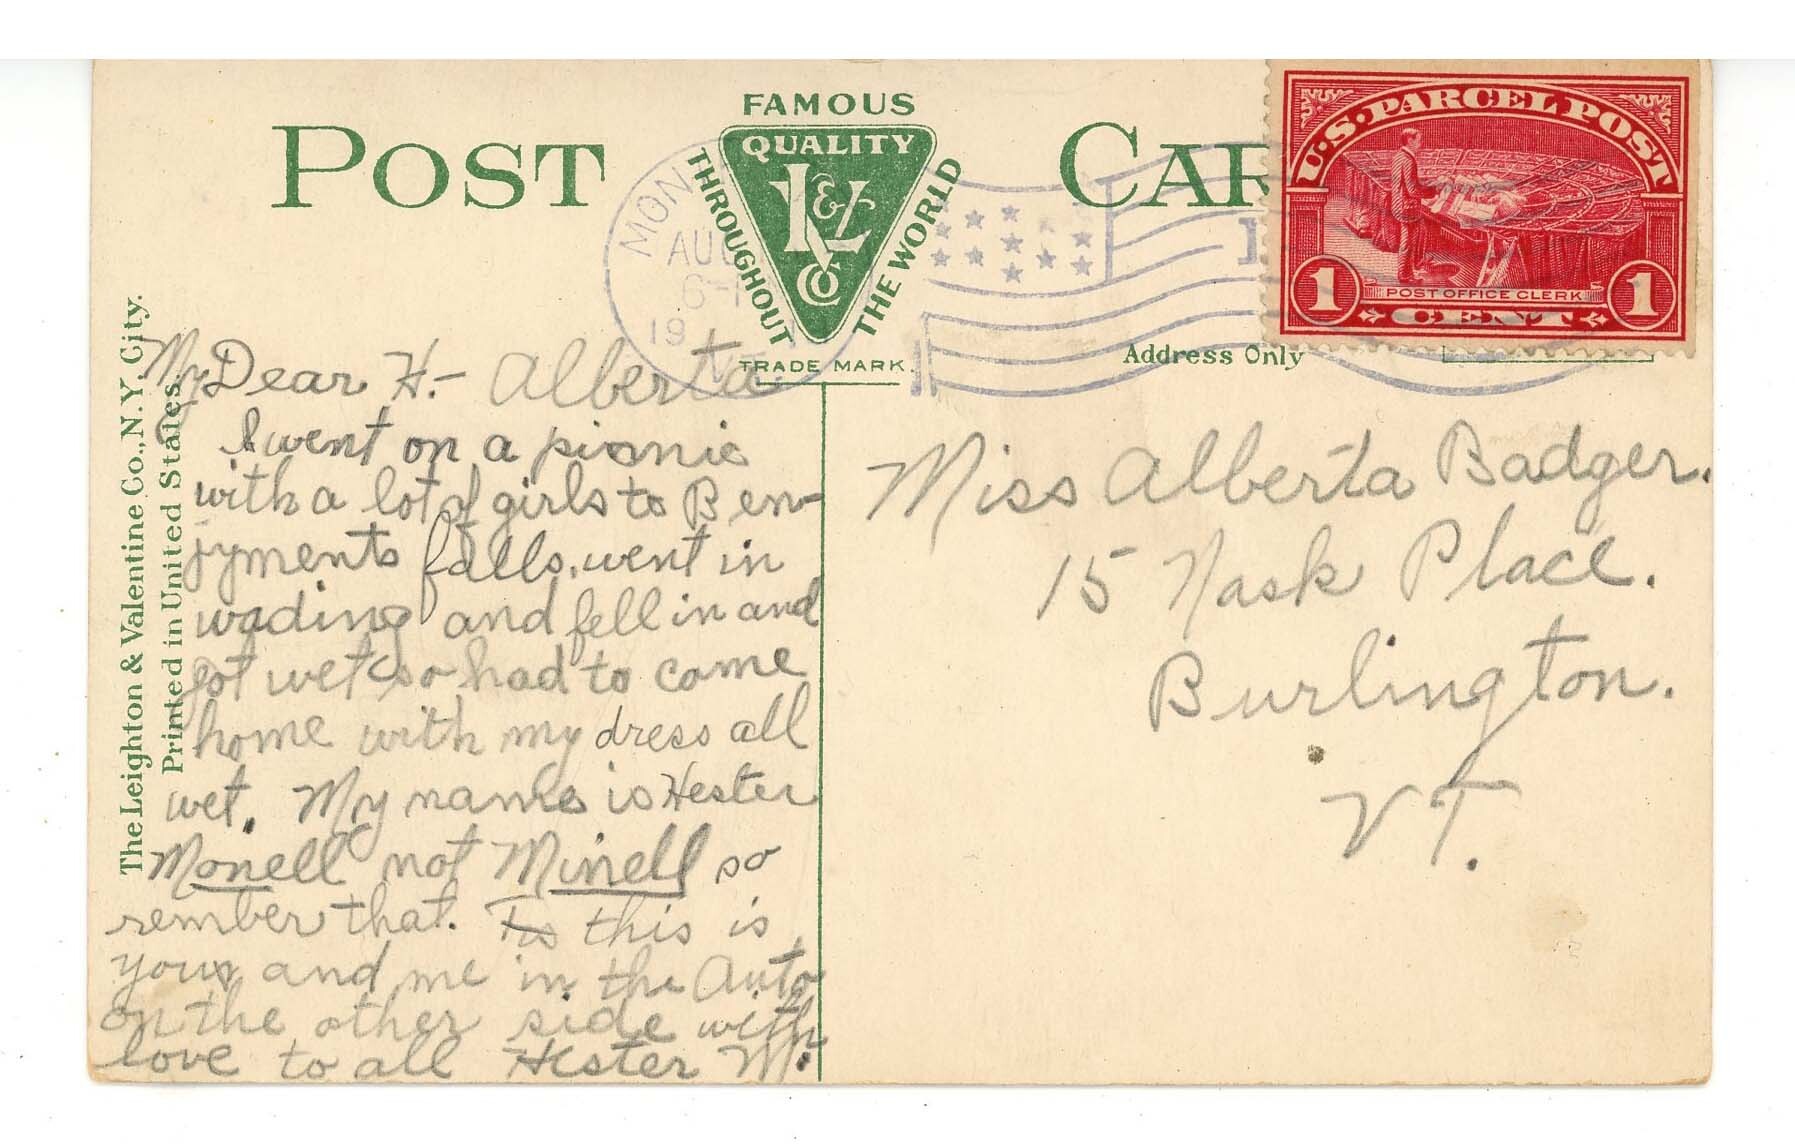 POST CAR
FAMOUS
QUALITY
L&V
Co
THROUGHOUT
THE WORLD
TRADE MARK.
MON
AU
6-
19
U.S. PARCEL POST
1 POST OFFICE CLERK 1
CENT
Address Only
The Leighton & Valentine Co., N.Y. City.
Printed in United States.
My Dear H.- Alberta
I went on a picnic
with a lot of girls to Ben-
jyments falls, went in
wading and fell in and
got wet so had to come
home with my dress all
wet. My name is Hester
Monell not Minell so
rember that. this is
your and me in the Auto
on the other side with
love to all Hester M.
Miss Alberta Badger.
15 Nash Place.
Burlington.
VT.